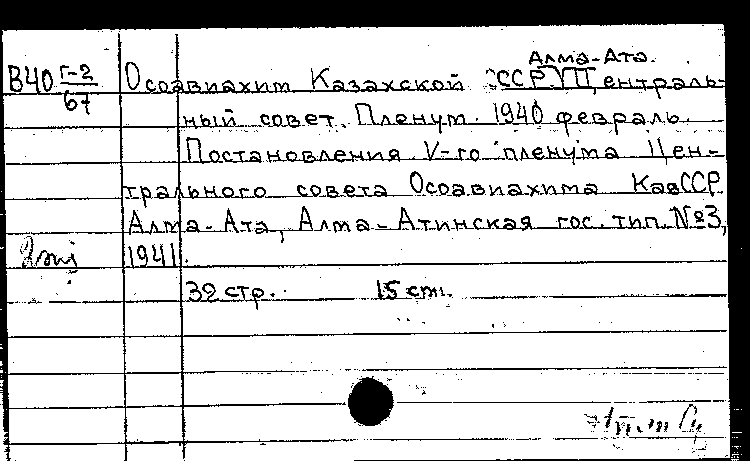 Алма-Ата.
В40 Г-2/67 Осоавиахим Казахской ССР. Централь-
ный совет. Пленум. 1940 февраль.
Постановления V-го пленума Цен-
трального совета Осоавиахима КазССР.
Алма-Ата, Алма-Атинская гос. тип. №3,
1941.
32 стр. 15 см.